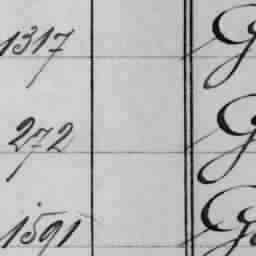 1317 G
272 G
1591 G